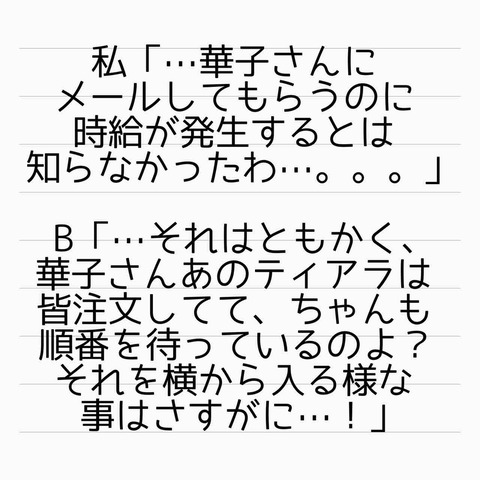 私「…華子さんに
メールしてもらうのに
時給が発生するとは
知らなかったわ…。。。」
B「…それはともかく、
華子さんあのティアラは
皆注文してて、ちゃんも
順番を待っているのよ？
それを横から入る様な
事はさすがに…！」